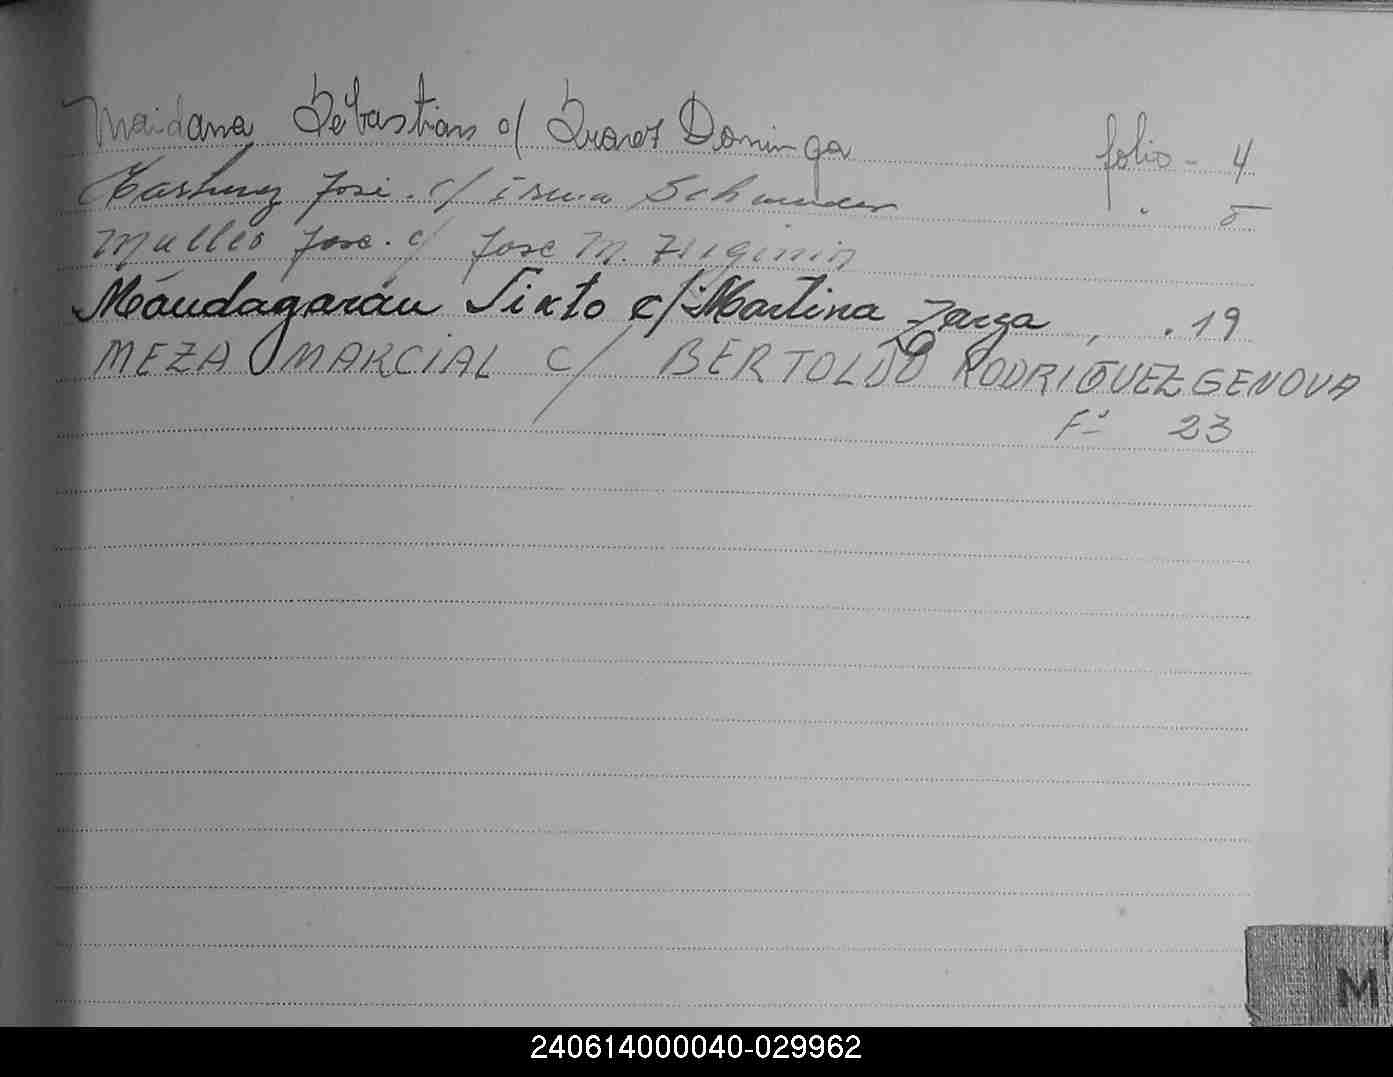 Maidana Sebastian c/ Suarez Dominga folio - 4
Martinez José. c/ Irma Schneider " 5
Mulleo Jose. c/ Jose M.
Mandagaran Sixto c/ Martina Zarza , . 19
MEZA MARCIAL C/ BERTOLDO RODRIGUEZ GENOVA
Fº 23
M
240614000040-029962